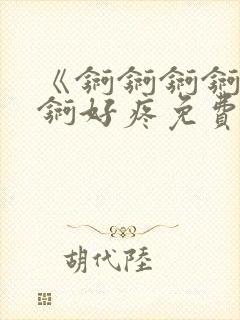 《锕锕锕锕
锕好疼免費
胡代陸